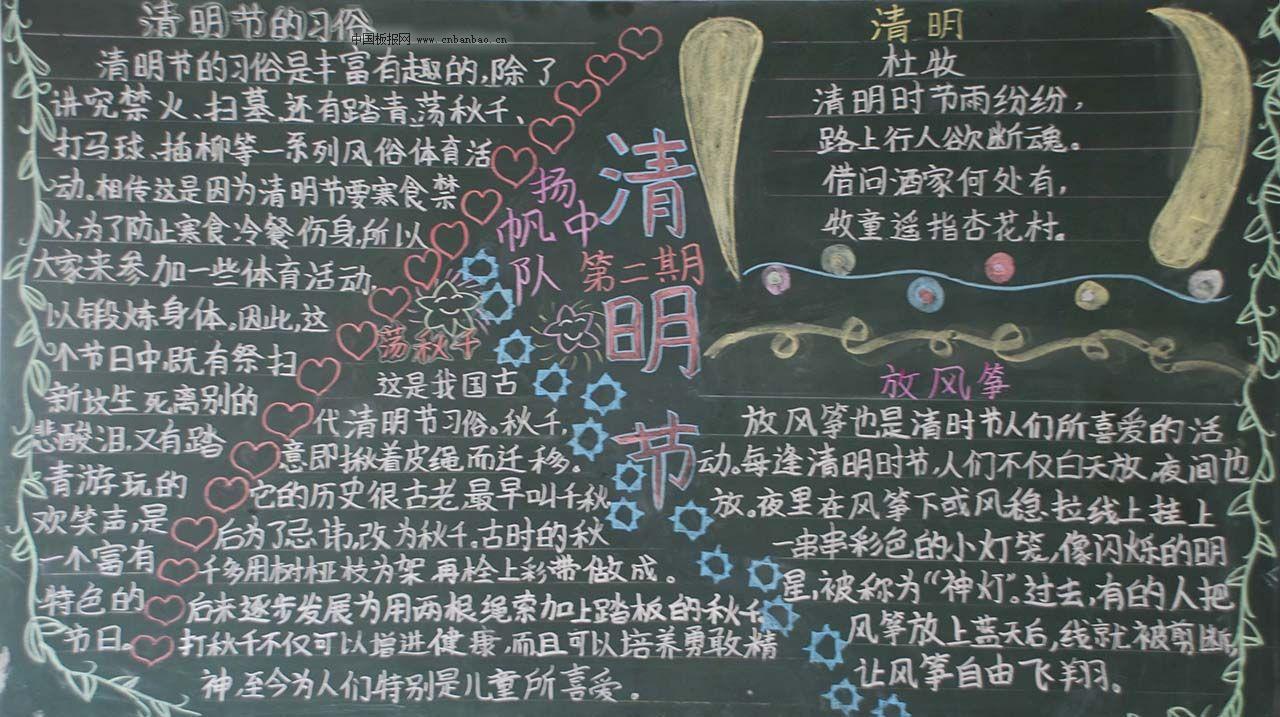 清明节的习俗
中国板报网 www.cnbanbao.cn
清明节的习俗是丰富有趣的,除了
讲究禁火、扫墓,还有踏青、荡秋千、
打马球、插柳等一系列风俗体育活
动。相传这是因为清明节要寒食禁
火,为了防止寒食冷餐伤身,所以
大家来参加一些体育活动,
以锻炼身体。因此,这
个节日中,既有祭扫
新坟生死离别的
悲酸泪,又有踏
青游玩的
欢笑声,是
一个富有
特色的
节日。
扬
帆中
队
清
第二期
明
节
荡秋千
这是我国古
代清明节习俗。秋千,
意即揪着皮绳而迁移。
它的历史很古老,最早叫千秋,
后为了忌讳,改为秋千。古时的秋
千多用树桠枝为架,再栓上彩带做成。
后来逐步发展为用两根绳索加上踏板的秋千
打秋千不仅可以增进健康,而且可以培养勇敢精
神,至今为人们特别是儿童所喜爱。
清明
杜牧
清明时节雨纷纷,
路上行人欲断魂。
借问酒家何处有,
牧童遥指杏花村。
放风筝
放风筝也是清时节人们所喜爱的活
动。每逢清明时节,人们不仅白天放,夜间也
放。夜里在风筝下或风稳拉线上挂上
一串串彩色的小灯笼,像闪烁的明
星,被称为“神灯”。过去,有的人把
风筝放上蓝天后,线就被剪断,
让风筝自由飞翔。